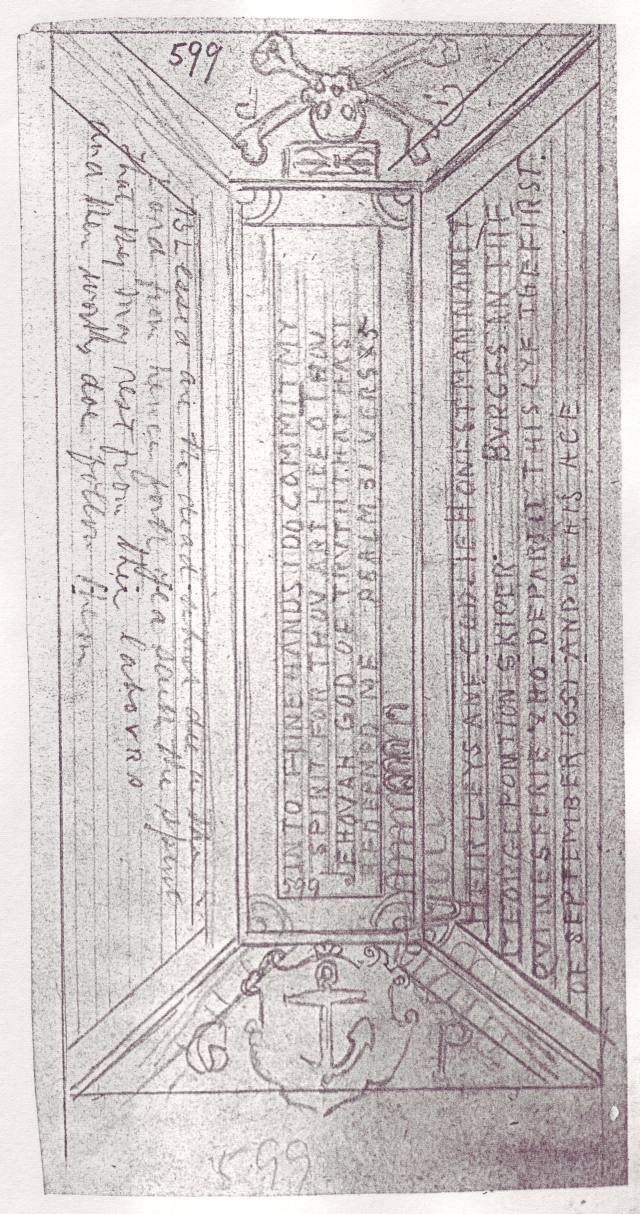 599
HEIR LEYS ANE GODLIE HONEST MAN NAMET
GEORGE PONTION SKIPER BVRGES IN THE
QVINESFERIE WHO DEPARTIT THIS LYF THE FIRST
OF SEPTEMBER 1651 AND OF HIS AGE
INTO THINE HANDS I DO COMMIT MY
SPIRIT FOR THOV ART HEE O THOV
JEHOVAH GOD OF TRVTH THAT HAST
REDEEMED ME PSALM 31 VERS 5
Blessed are the dead which die in the
Lord from hence forth yea saith the spirit
that they may rest from their laboVRs
and their works doe follow them
G P
599